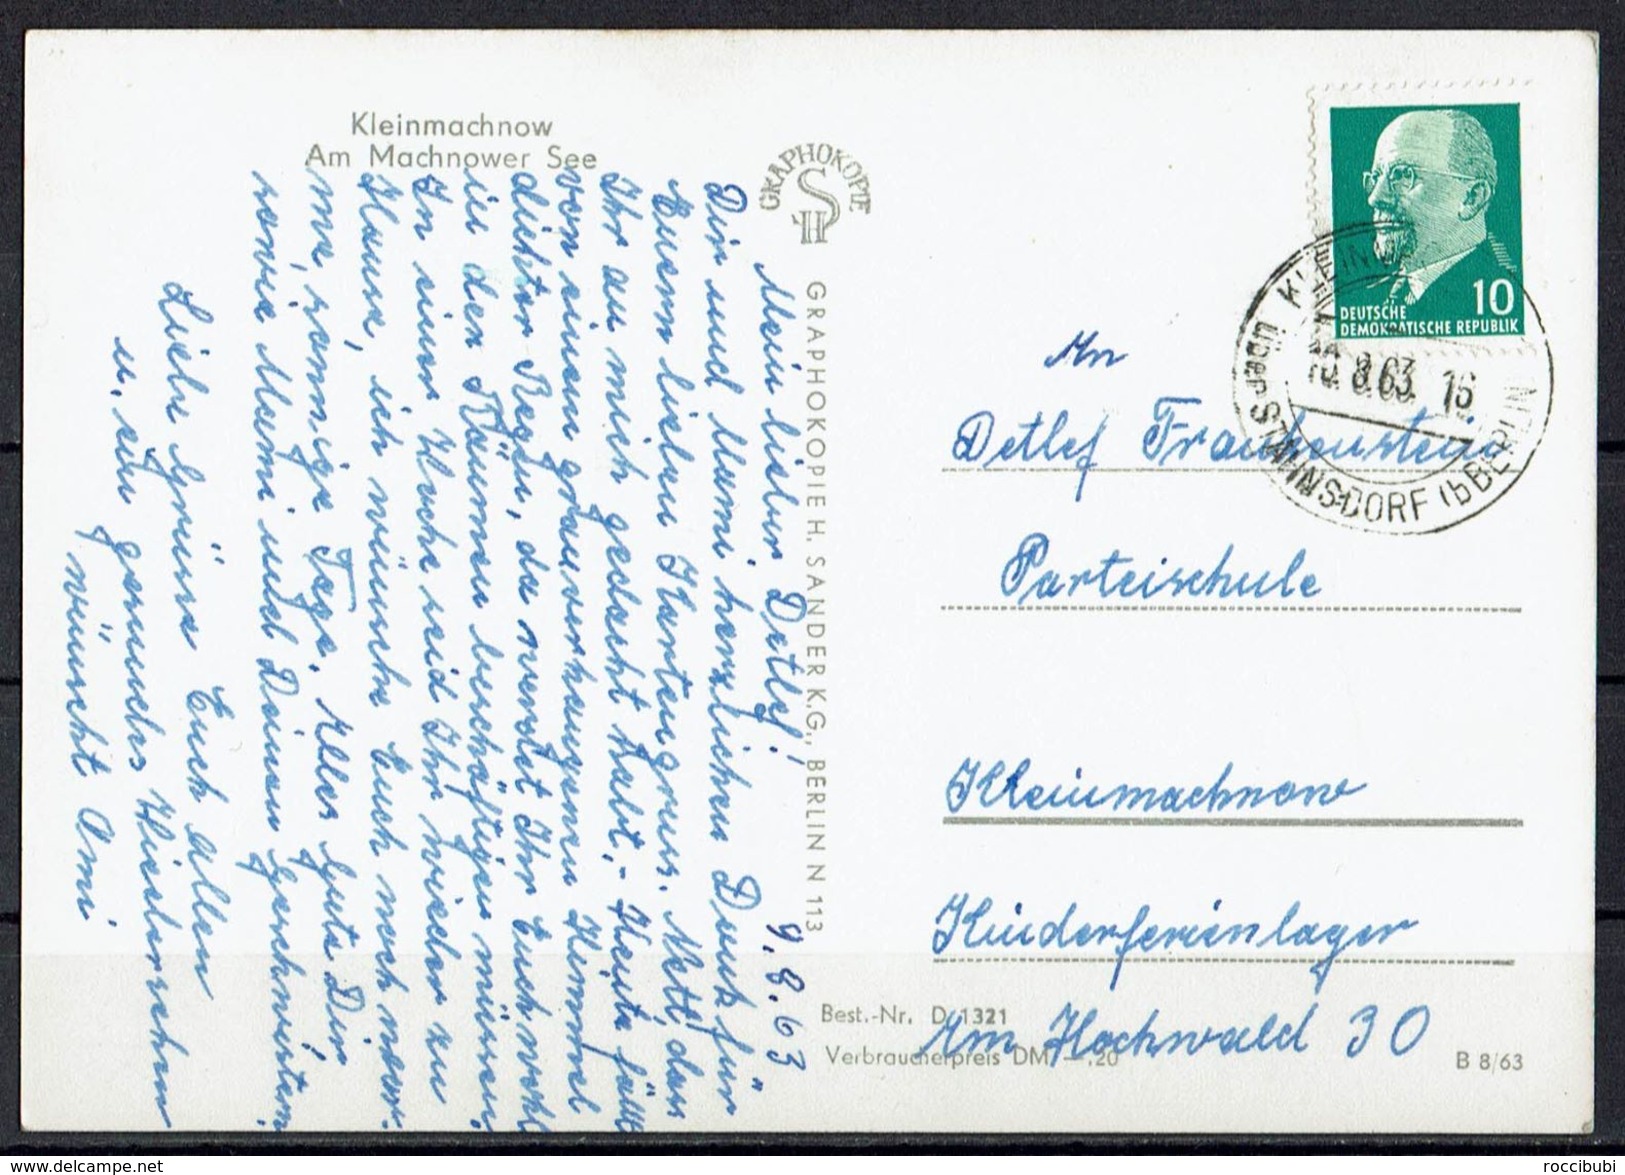 Kleinmachnow
Am Machnower See
GRAPHOKOPIE
SH
GRAPHOKOPIE H. SANDER K.G., BERLIN N 113
9.8.63
Mein lieber Detlef!
Dir und Mami herzlichen Dank für
Euern lieben Kartengruss. Nett, dass
Ihr an mich gedacht habt. - Heute fällt
von einem grauverhangenen Himmel
dichter Regen, da werdet Ihr Euch wohl
in den Räumen beschäftigen müssen.
In einer Woche seid Ihr wieder zu
Hause, ich wünsche Euch noch war-
me, sonnige Tage. Alles Gute Dir
sowie Mami und Deinen Geschwistern.
Liebe Grüsse Euch allen
u. ein gesundes Wiedersehen
wünscht Omi
DEUTSCHE
DEMOKRATISCHE REPUBLIK
10
10.8.63. 16
über STAHNSDORF (b BERLIN)
An
Detlef Frankenstein
Parteischule
Kleinmachnow
Kinderferienlager
Am Hochwald 30
Best.-Nr. D 1321
Verbraucherpreis DM -,20
B 8/63
delcampe.net
roccibubi